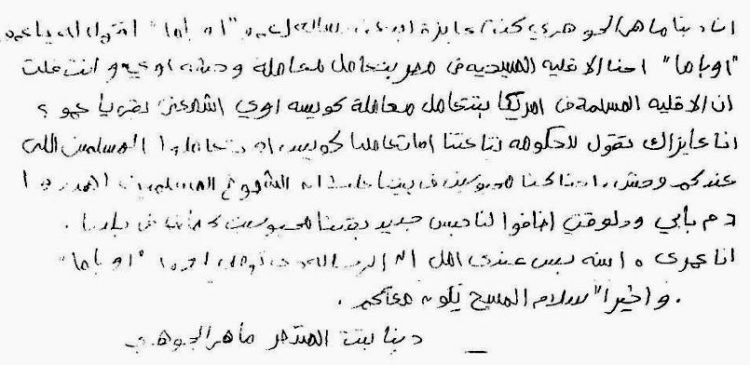 انا دينا ماهر الجوهري كنت عايزة ابعت رسالة لعمو "اوباما" اقول له يا عمو
"اوباما" احنا الاقليه المسيحيه فى مصر بنتعامل معاملة وحشه اوي وانت قلت
ان الاقليه المسلمة فى امريكا بتتعامل معاملة كويسه اوي اشمعنى نحن يا عمو ؟
انا عايزاك تقول للحكومه بتاعتنا اما تعاملنا كويس او تعاملوا المسلمين اللى
عندكم وحش، احنا كنا محبوسين فى بيتنا علشان الشيوخ المسلمين اهدروا
دم بابي ودلوقتى اضافوا لنا حبس جديد بقينا محبوسين كمان فى بلدنا.
انا عمري ١٥ سنه بس عندى امل ان الرساله دى توصل لعمو "اوباما"
. واخيرا" سلام المسيح يكون معاكم.
دينا بنت المتنصر ماهر الجوهري